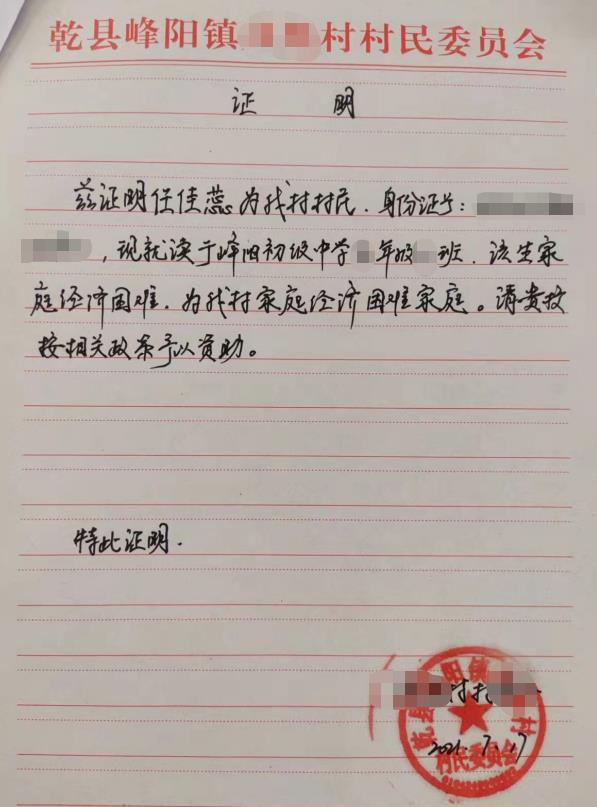 乾县峰阳镇 村村民委员会
证 明
兹证明任佳蕊为我村村民.身份证号:
,现就读于峰阳初级中学 年级 班.该生家
庭经济困难.为我村家庭经济困难家庭。请贵校
按相关政策予以资助。
特此证明.
村村
2021.7.17
乾县 阳镇 村
村民委员会